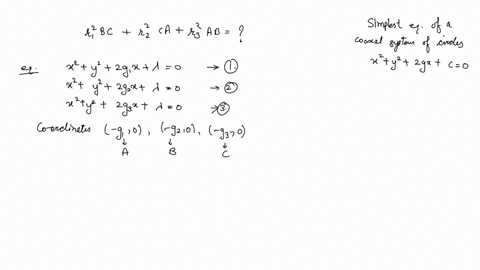 r₁² BC + r₂² CA + r₃² AB = ?
Simplest eq. of a
coaxal system of circles
x² + y² + 2gx + c = 0
eq. x² + y² + 2g₁x + λ = 0 → ①
x² + y² + 2g₂x + λ = 0 → ②
x² + y² + 2g₃x + λ = 0 → ③
Coordinates (-g₁, 0), (-g₂, 0), (-g₃, 0)
↓ ↓ ↓
A B C